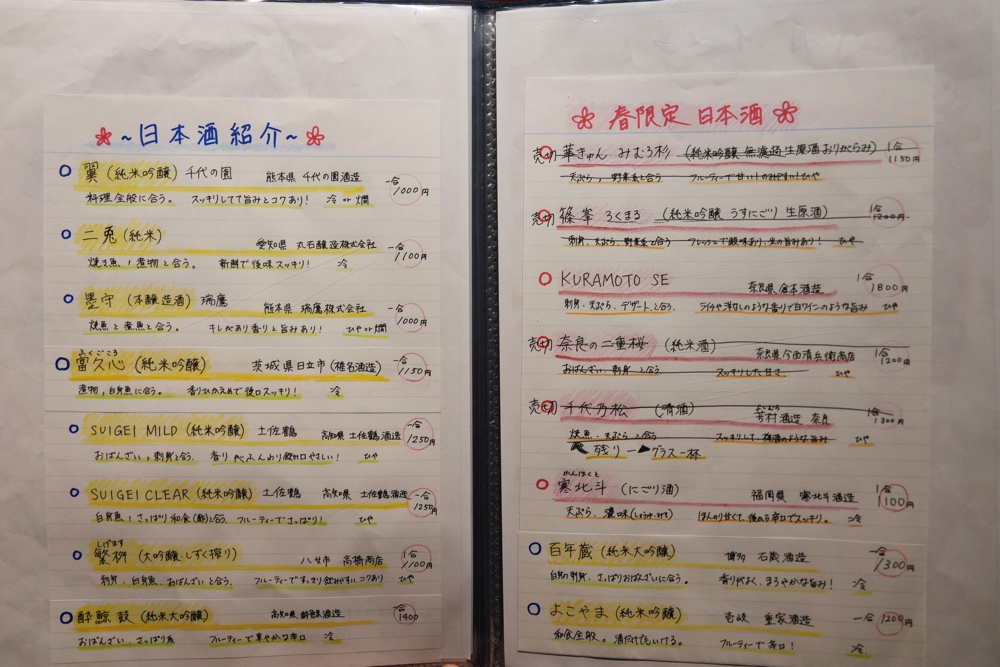 ~日本酒紹介~
翼(純米吟醸) 千代の園 熊本県 千代の園酒造 一合 1000円
料理全般に合う。 スッキリしてて旨みとコクあり! 冷 or 燗
二兎(純米) 愛知県 丸石醸造株式会社 一合 1100円
焼き魚,煮物と合う。 新鮮で後味スッキリ! 冷
墨守(本醸造酒) 瑞鷹 熊本県 瑞鷹株式会社 一合 1000円
焼魚と煮魚と合う。 キレがあり香りと旨みあり! ひや or 燗
ふくごころ
富久心(純米吟醸) 茨城県日立市(椎名酒造) 一合 1150円
煮物,白身魚に合う。 香りひかえめで後口スッキリ! 冷
SUIGEI MILD (純米吟醸) 土佐鶴 高知県 土佐鶴酒造 一合 1250円
おばんざい,刺身と合う。 香りがふんわり飲み口やさしい! ひや
SUIGEI CLEAR (純米吟醸) 土佐鶴 高知県 土佐鶴酒造 一合 1250円
白身魚,さっぱり和食(酢)と合う、フルーティーでさっぱり! ひや
しげます
繁桝(大吟醸・しずく搾り) 八女市 高橋商店 1合 1100円
刺身、白身魚、おばんざいと合う。 フルーティーですっきり飲みやすい、コクあり ひや
酔鯨鼓(純米大吟醸) 高知県 酔鯨酒造 一合 1400
おばんざい、さっぱり系 フルーティーで華やかな辛口 冷
春限定 日本酒
売切 華きゅん みむろ杉 (純米吟醸 無濾過生原酒おりがらみ) 1合 1150円
天ぷら、野菜系と合う フルーティーで甘い!のみやすい! ひや
売切 篠峯 ろくまる (純米吟醸 うすにごり 生原酒) 1合 1200円
刺身、天ぷら、野菜系と合う フレッシュで酸味あり、米の旨みあり! ひや
KURAMOTO SE 奈良県 倉本酒造 1合 1800円
刺身、天ぷら、デザートと合う。 ライチや洋なしのような香りで白ワインのような旨み ひや
売切 奈良の二重桜 (純米酒) 奈良県今西清兵衛商店 1合 1200円
おばんざい、刺身と合う スッキリした甘さ ひや
売切 千代乃松 (清酒) 芳村酒造 奈良 1合 1300円
よしむら
焼魚、天ぷらと合う ひや
残り → グラス一杯
かんほくと
寒北斗(にごり酒) 福岡県 寒北斗酒造 1合 1100円
天ぷら、濃味(しょうゆ・みそ) ほんのり甘くて、後から辛口でスッキリ。 冷
百年蔵(純米大吟醸) 博多 石蔵酒造 一合 1300円
白身の刺身、さっぱりおばんざいに合う。 香りがよく、まろやかな旨み! 冷
よこやま(純米吟醸) 壱岐 重家酒造 一合 1200円
和食全般。酒だけでもいける。 フルーティーで辛口! 冷